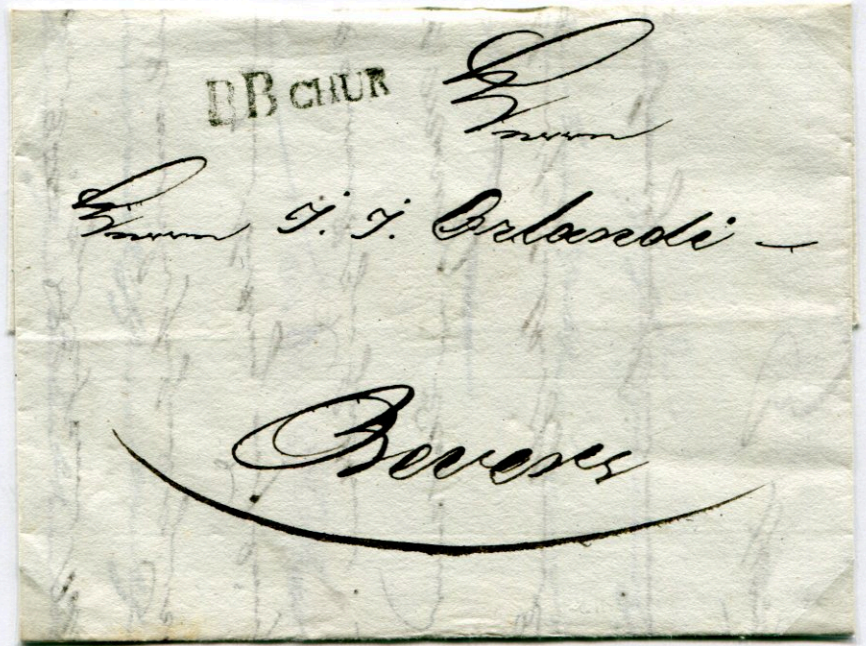 BB CHUR
Herrn
Herrn J. J. Orlandi –
Bevers